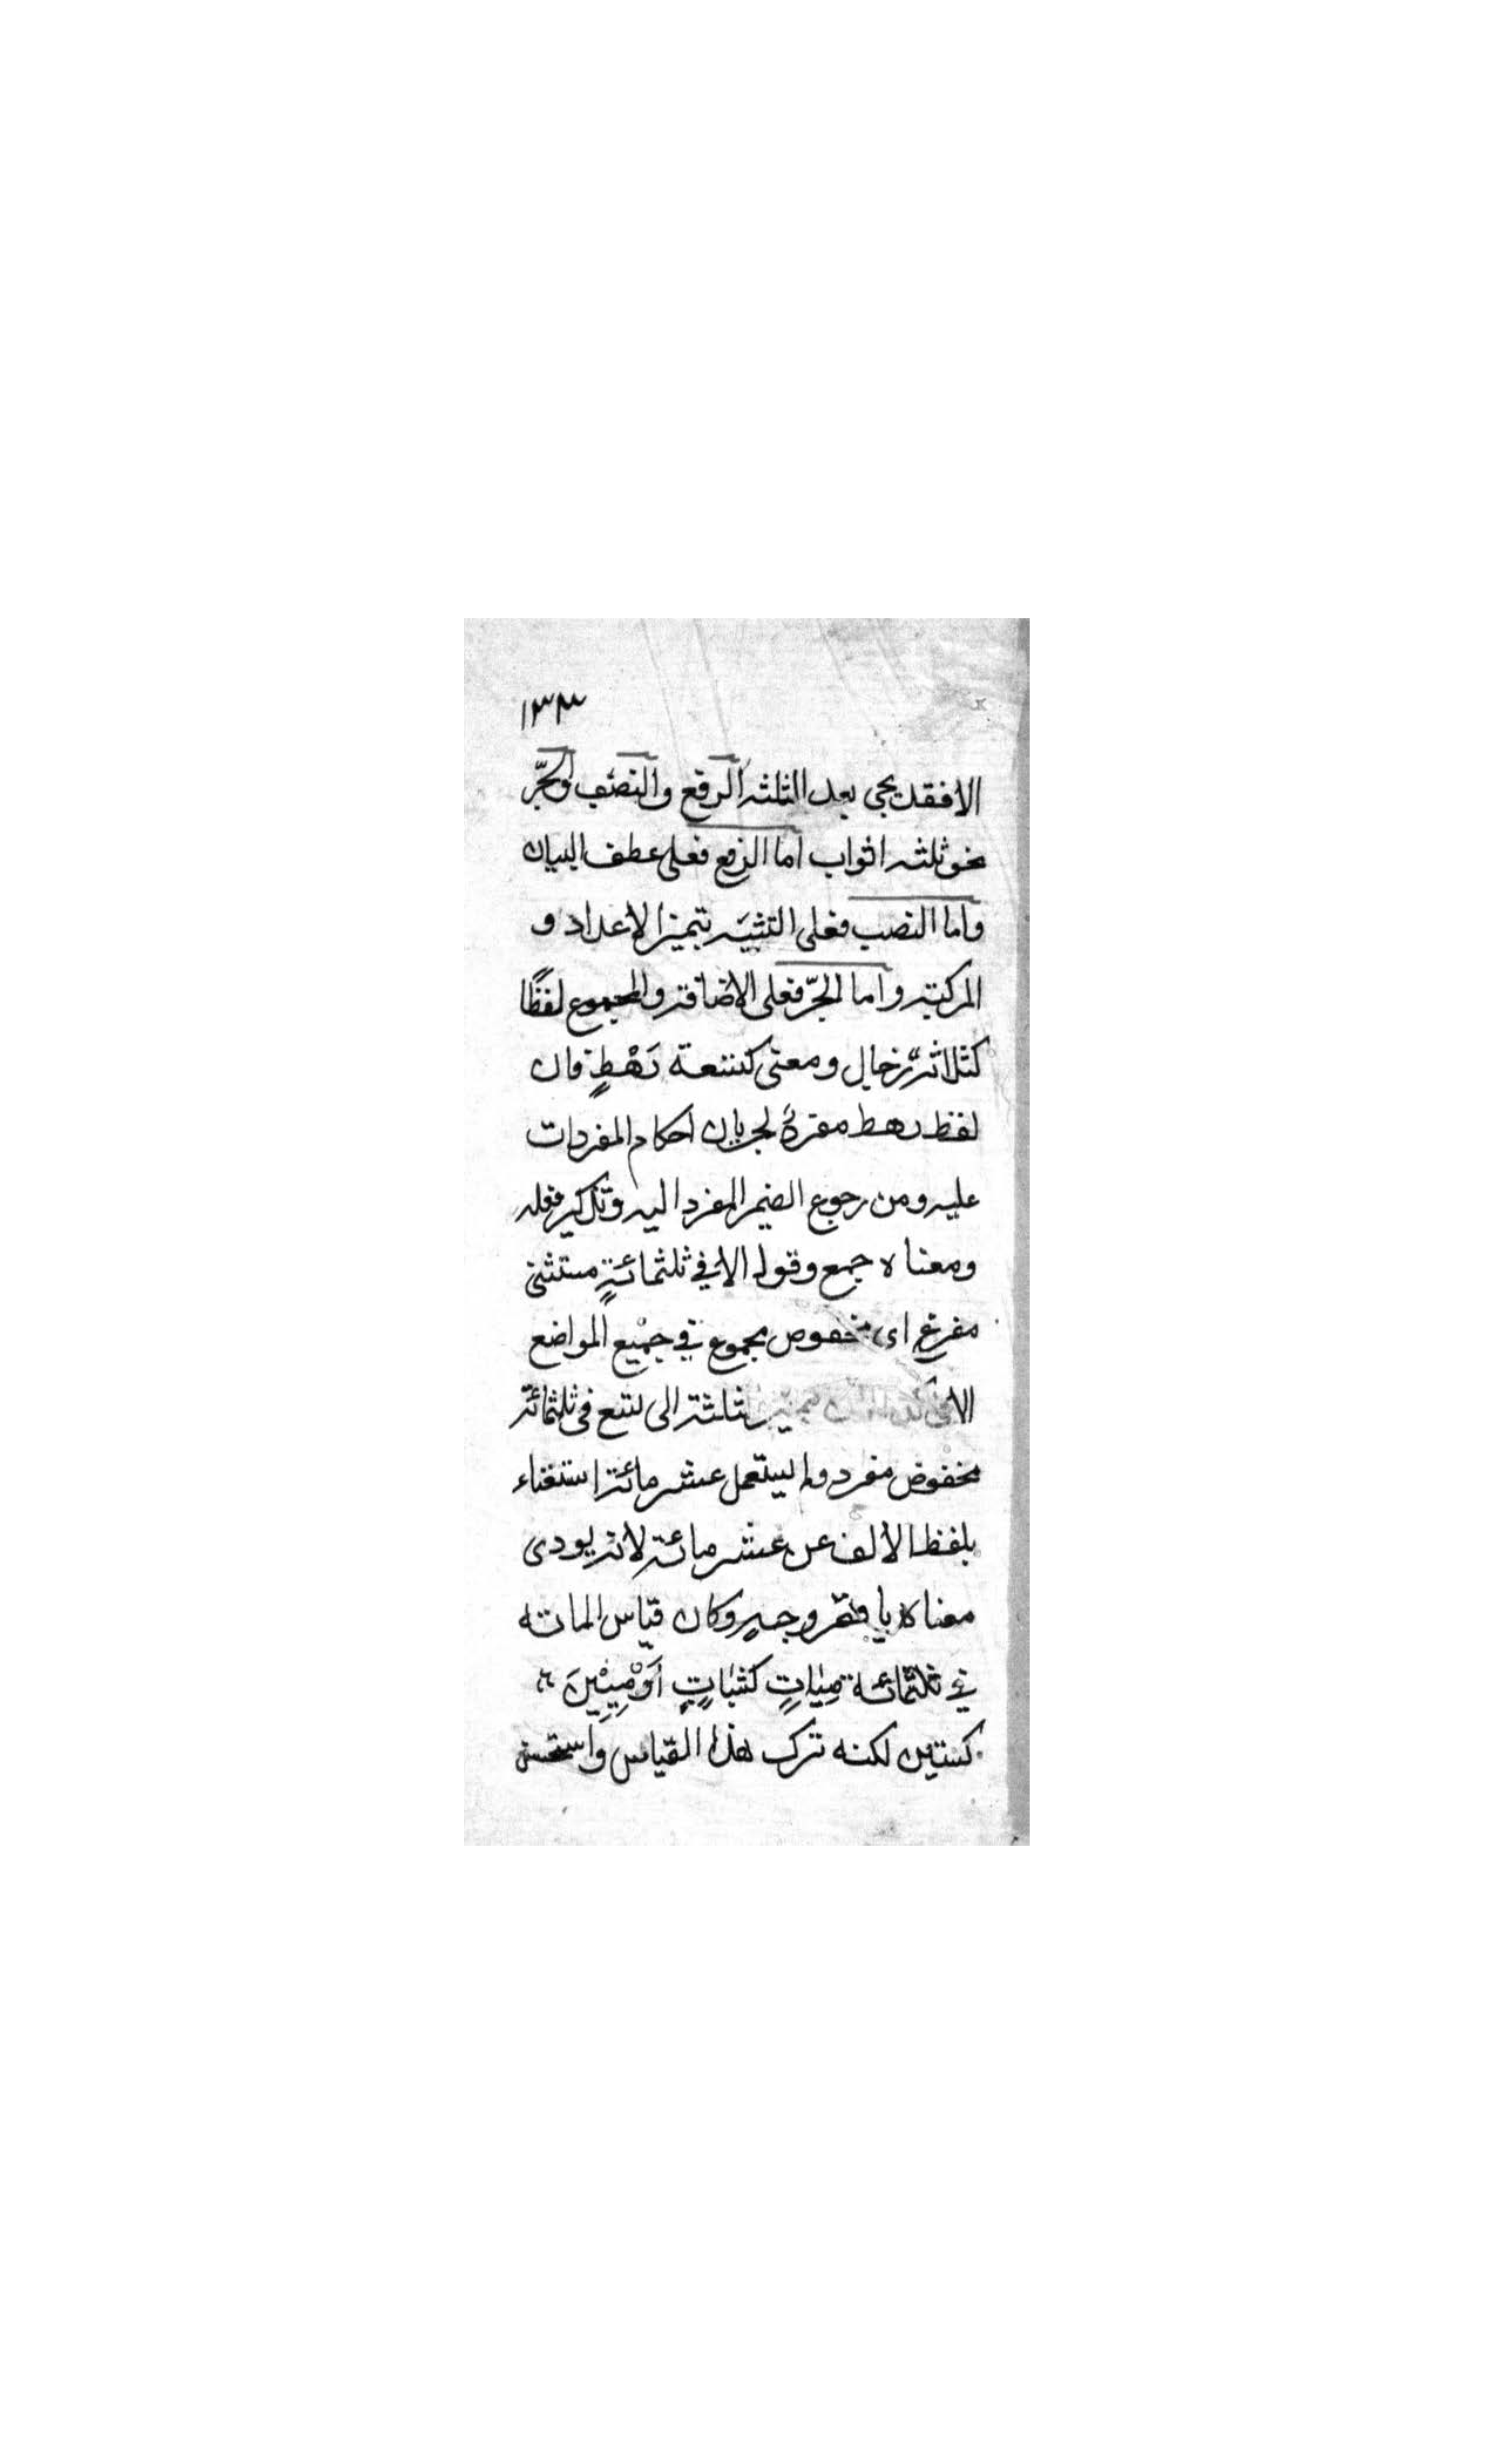 ١٣٣
الا فقد يجي بعد الثلثه الرفع والنصب والجرّ
نحو ثلثه اثواب اما الرفع فعلى عطف البيان
واما النصب فعلى التثبيه بتميز الاعداد و
المركبه واما الجرّ فعلى الاضافه والمجموع لفظًا
كثلاثه رجال ومعنى كتسعة رَهْطٍ فان
لفظ رهط مفرد لجريان احكام المفردات
عليه ومن رجوع الضمير المفرد اليه وتذكير فعله
ومعناه جمع وقوله الا في ثلثمائةٍ مستثنى
مفرغ اى مخفوص مجموع في جميع المواضع
الا ثلثة الى تسع فى ثلثمائة
مخفوض مفرد ولم يستعمل عشر مائة استغناء
بلفظ الالف عن عشر مائة لانه يودى
معناه باخصر وجه وكان قياس الماته
في ثلثمائة مِيٰاتٍ كثبٰاتٍ اَوْ مِيِيْنَ
كسنين لكنه ترك هذا القياس واستحسن